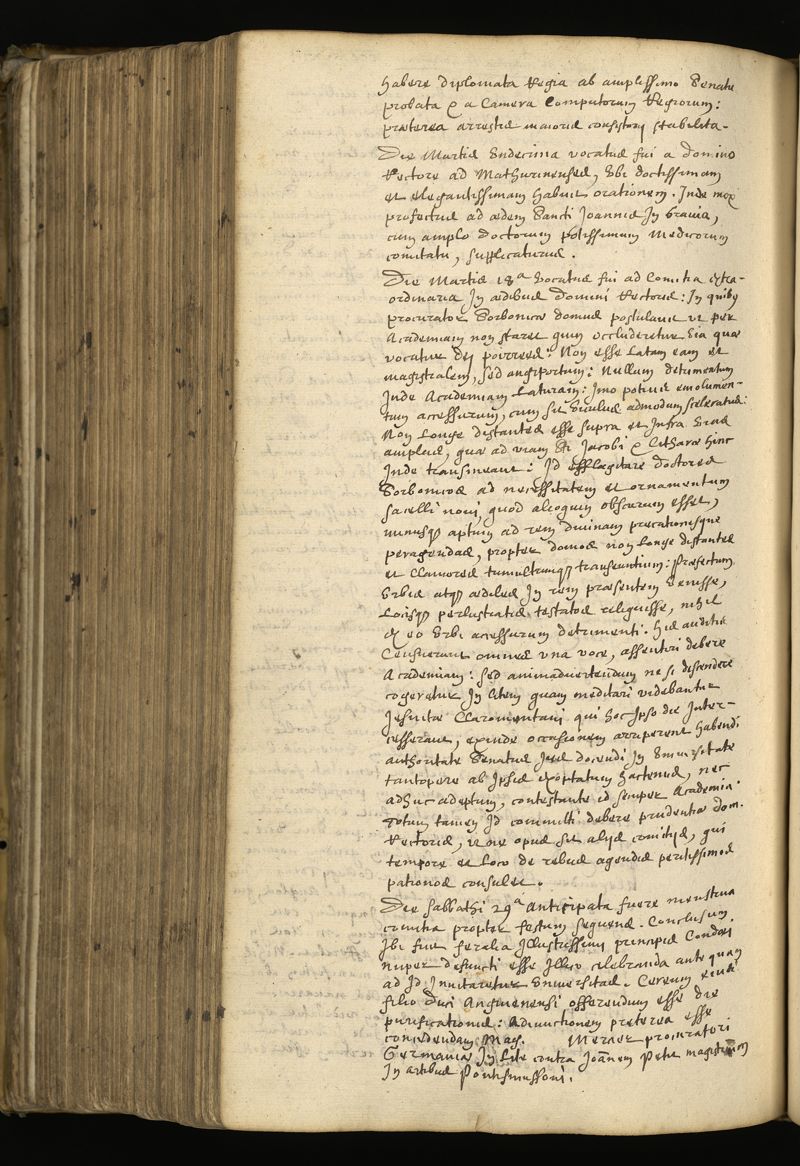 habere diplomata Regia ab amplissimo Senatu
probata & a Camera Computorum Regiorum:
præterea arrestis maioris consistorij stabilita.
Die Martis Undecima vocatus fui a domino
Rectore ad Mathurinenses, Ubi doctissimam
et elegantissimam habuit orationem. Inde mox
profectus ad ædem Sancti Joannis In Gravia,
cum amplo doctorum potissimum Medicorum
comitatu, supplicaturus.
Die Martis 18ª Vocatus fui ad Comitia extra-
ordinaria In ædibus Domini Rectoris: In quibus
procurator Sorbonicæ domus postulavit ut per
Academiam non staret quin occluderetur Via quæ
vocatur des poirrees: Non esse Latam eam et
magistralem, sed angiportum: Nullum detrimentum
Inde Academiam Laturam: Imo potius emolumen-
tum accessurum, cum sit Viculus admodum sceleratus:
Non Longe distantes esse supra et Infra Vias
amplas, quæ ad viam Sti Jacobi & Citharæ hinc
Inde transmeant: Id efflagitare doctores
Sorbonicos ad necessitatem et ornamentum
sacelli novi, quod alioquin obscurum esset,
minusq, aptum ad rem divinam precationesque
peragendas, propter domos non Longe distantes
et Clamores tumultumq, transeuntium: Præfectum
Urbis atq, ædiles In rem præsentem Venisse,
Locisq, perlustratis testatos reliquisse, nihil
ex eo Urbi accessurum detrimenti. His auditis
Censuerunt omnes vna voce, assentiri debere
Academiam: sed animadvertendum ne si discendere
cogeretur In litem quam meditari videbantur
Jesuitæ Claromontani qui hoc Ipso die Inter-
cesserant, exinde occasionem arriperent habendi
authoritate Senatus Jus docendi In Vniversitate
tantopere ab Ipsis exoptatum hactenus, nec
adhuc adeptum, contestante id semper Academia.
Totum tamen Id committi debere prudentiæ dom.
Rectoris, ut ne opus sit alijs comitijs, qui
tempore et Loco de rebus agendis peritissimos
pationos consulet.
Die Sabbathi 29ª Anticipata fuere menstrua
comitia propter festum sequens. Conclusum
Ibi fuit feralia Illustrissimi principis Condæi
nuper defuncti esse Illico celebranda antequam
ad Id Invitaretur Vniversitas. Cereum eius
filio Duci Anguiensi offerendum esse die
purificationis: Adiunctionem præterea esse
concedendam Mag. Mercer procuratori
Germaniæ In lite contra Joannem Petit magistrum
In artibus Pontimussoni.